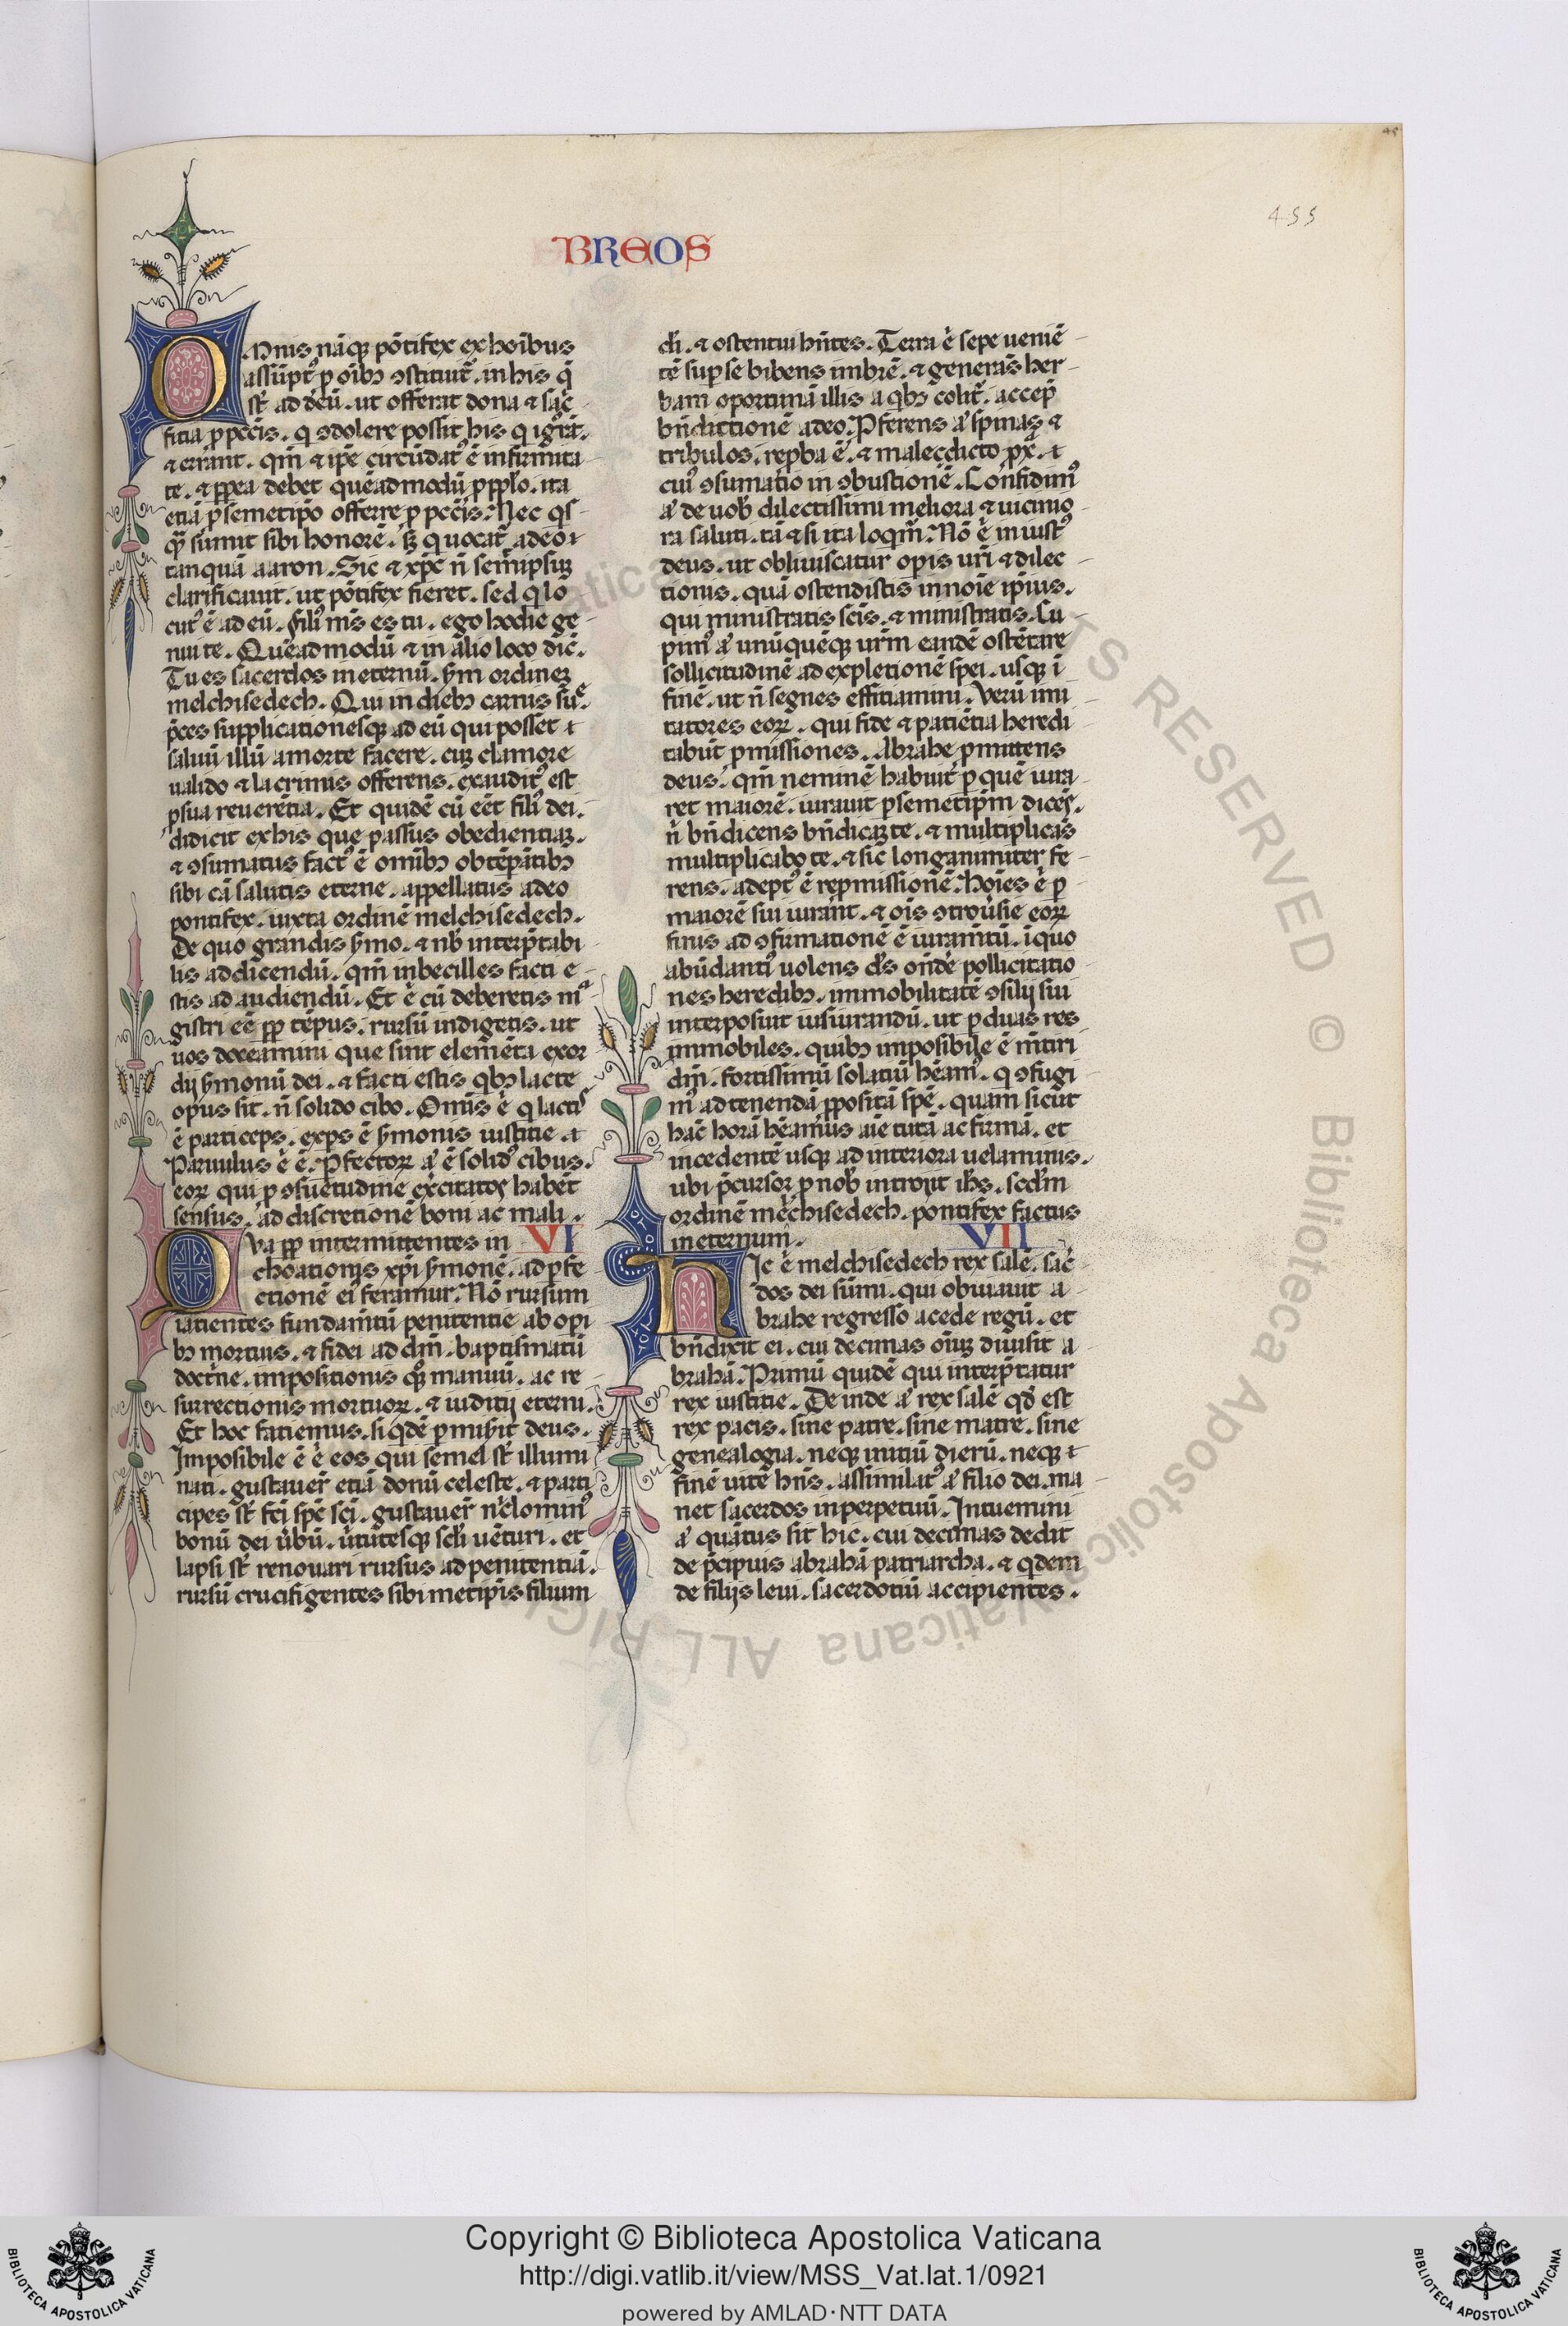 455
BREOS
Omnis nāq̄ pōtifex ex hoībus
assūpt᷒ p oībꝫ ꝯstituit᷒. in his q̄
st̄ ad deū. ut offerat dona ⁊ sac̄
ficia p pcc̄is. q ꝯdolere possit his q ig̅rāt.
⁊ errant. qm̄ ⁊ ip̄e circūdat᷒ ē infirmita
te. ⁊ ꝓpea debet quēadmodū p pplo. ita
etiā p semetip̄o offerre p pcc̄is. Nec qs
q̄ sumit sibi honorē. sꝫ q uocat᷒ a deo
tanquā aaron. Sic ⁊ xp̄c n̄ semīpsuꝫ
clarificauit. ut pōtifex fieret. sed q lo
cut᷒ ē ad eū. fili᷒ m̄s es tu. ego hodie ge
nui te. Quēadmodū ⁊ in alio loco dic̄.
Tu es sacerdos in eternū. s̄m ordineꝫ
melchisedech. Qui in diebꝫ carnis su᷒e
p̄ces supplicationesqꝫ ad eū qui possēt
saluū illū a morte facere. cuꝫ clamore
ualido ⁊ lacrimis offerens. exaudit᷒ est
p sua reuerētia. Et quidē cū eēt fili᷒ dei.
didicit ex his que passus obedientiaꝫ.
⁊ ꝯsumatus fact᷒ ē omībꝫ obtēpātibꝫ
sibi cā salutis eterne. appellatus a deo
pontifex. iuxta ordinē melchisedech.
De quo grandis s̄mo. ⁊ nb̄ interp̄tabi
lis ad dicendū. qm̄ inbecilles facti e
stis ad audiendū. Et ē cū deberetis mᵃ
gistri eē ꝓp tēpus. rursū indigetis. ut
uos doceamini que sint elemēta exor
dij s̄monū dei. ⁊ facti estis qbꝫ lacte
opus sit. n̄ solido cibo. Omīs ē q lactis
ē particeps. exps ē s̄monis iustitie
Paruulus ē ē. Pfectoꝝ aͥ ē solid᷒ cibus.
eoꝝ qui p ꝯsuetudine ex̄citatos habēt
sensus. ad discretionē boni ac mali.
Qva ꝓp intermittentes in VI
choationis xp̄i s̄monē. ad pfe
ctionē ei feramur. Nō rursum
iacientes fundam̄tū penitentie ab opi
bꝫ mortuis. ⁊ fidei ad dm̄. baptismatū
doct̄ne. impositionis qꝫ manuū. ac re
surrectionis mortuoꝝ. ⁊ iuditij eterni.
Et hoc fatiemus. si qdē pmisit deus.
Imposibile ē ē eos qui semel st̄ illumi
nati. gustauer̄ etiā donū celeste. ⁊ parti
cipes st̄ fc̄i sp̄c sc̄i. gustauer̄ nc̄lomin᷒
bonū dei u̅bū. u̅tutesqꝫ sc̄li uēturi. et
lapsi st̄ renouari rursus ad penitentiā.
rursū crucifigentes sibi metip̄is filium
di. ⁊ ostentui hn̄tes. Terra ē sepe ueniē
tē sup se bibens imbrē. ⁊ generās her
bam oportunā illis a qbꝫ colit᷒. accep̄
bn̄dictionē a deo. Pferens aͥ spinas ⁊
tribulos. repba ē. ⁊ maledicto px̄.
cui᷒ ꝯsumatio in ꝯbustionē. Confidim᷒
aͥ de uob̄ dilectissimi meliora ⁊ uicinio
ra saluti. tā ⁊ si ita loqm̄. Nō ē iniust᷒
deus. ut obliuiscatur opis uri ⁊ dilec
tionis. quā ostendistis in noīe ipius.
qui ministratis scīs. ⁊ ministratis. Cu
pim᷒ aͥ unūquēqꝫ ur̄m eandē ostētare
sollicitudinē ad expletionē spei. usqꝫ ī
finē. ut n̄ segnes effitiamini. Verū imi
tatores eoꝝ. qui fide ⁊ patiētia heredi
tabūt pmissiones. Abrahe pmittens
deus. qm̄ neminē habuit p quē iura
ret maiorē. iurauit p semetip̄m dicēs.
n̄ bn̄dicens bn̄dicaꝫ te. ⁊ multiplicās
multiplicabo te. ⁊ sic longanimiter fe
rens. adept᷒ ē repmissionē. Hoīes ē p
maiorē sui iurānt. ⁊ oīs ꝯtrou̅sie eoꝝ
finis ad ꝯfirmationē ē iuram̄tū. ī quo
abūdanti᷒ uolens ds̄ ondē pollicitatio
nes heredibꝫ. immobilitatē ꝯsilij sui
interposuit iusiurandū. ut p duas res
immobiles. quibꝫ imposibile ē m̄tiri
dm̄. fortissimū solatiū hēam᷒. q ꝯfugi
m᷒ ad tenendā ꝓpositā spē. quam sicut
hac̄ horā hēamus aīe tutā ac firmā. et
incedentē usqꝫ ad interiora uelaminis.
ubi p̄cursor p nob̄ introijt ih̄s. sed̄m
ordinē mēchisedech. pontifex factus
in eternum. VII
Hic ē melchisedech rex salē. sac̄
dos dei sūmi. qui obuiauit a
brahe regresso a cede regū. et
bn̄dixit ei. cui decimas oīuꝫ diuisit a
brahā. Primū quidē qui interp̄tatur
rex iustitie. Deinde aͥ rex salē qd̄ est
rex pacis. sine patre. sine matre. sine
genealogia. neqꝫ initiū dierū. neqꝫ
finē uitē hn̄s. assimilat᷒ aͥ filio dei. ma
net sacerdos in perpetuū. Intuemini
aͥ quātus sit hic. cui decimas dedit
de p̄cipuis abrahā patriarcha. ⁊ qdem
de filijs leui. sacerdotiū accipientes.
ALL RIGHTS RESERVED © Biblioteca Apostolica Vaticana
Copyright © Biblioteca Apostolica Vaticana
http://digi.vatlib.it/view/MSS_Vat.lat.1/0921
powered by AMLAD·NTT DATA
BIBLIOTECA APOSTOLICA VATICANA
BIBLIOTECA APOSTOLICA VATICANA